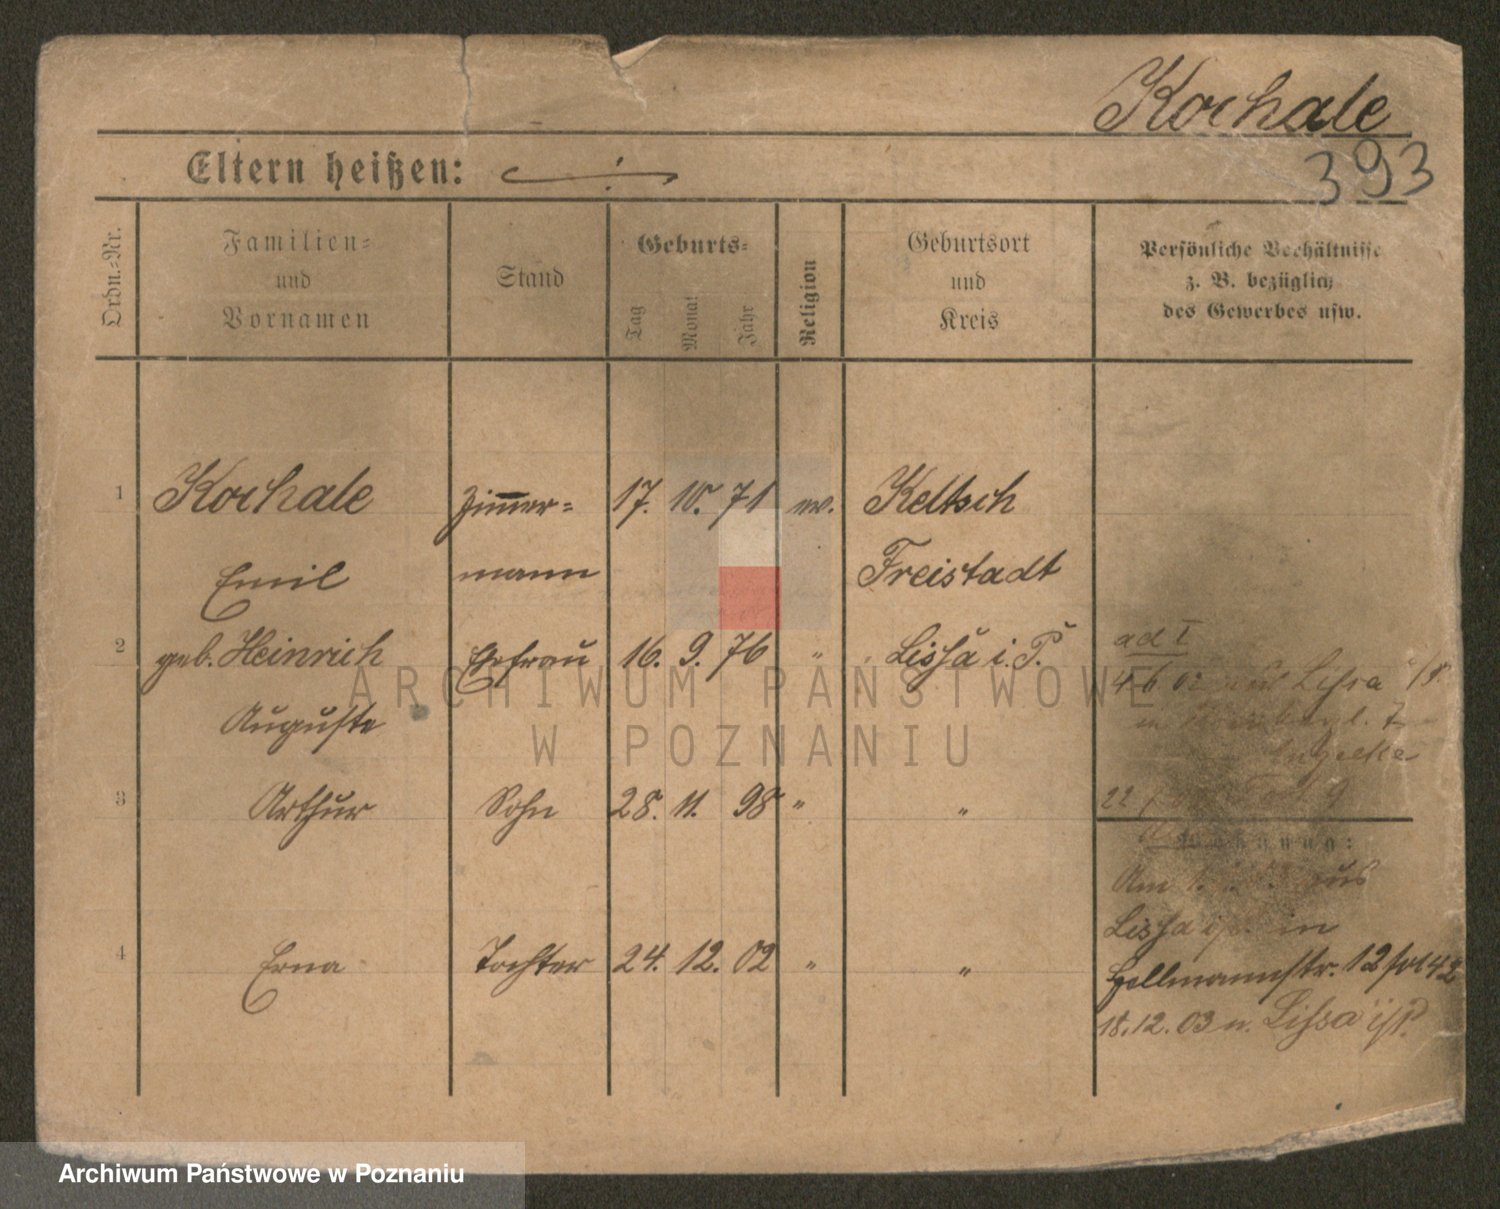 Kochale
393
Eltern heißen:
Ordn.-Nr.
Familien-
und
Vornamen
Stand
Geburts-
Tag
Monat
Jahr
Religion
Geburtsort
und
Kreis
Persönliche Verhältnisse
z. B. bezüglich
des Gewerbes usw.
1 Kochale Zimmer= 17. 10. 71 ev. Keltsch
Emil mann Freistadt
2 geb. Heinrich Ehefrau 16. 9. 76 " Lissa i. P.
Auguste
ad I
4 6 02 Lissa
3 Arthur Sohn 28. 11. 98 " "
22
Wohnung:
Am 1. aus
Lissa in
4 Erna Tochter 24. 12. 02 " "
Hellmannstr. 12
18. 12. 03 n. Lissa i/P.
ARCHIWUM PAŃSTWOWE
W POZNANIU
Archiwum Państwowe w Poznaniu